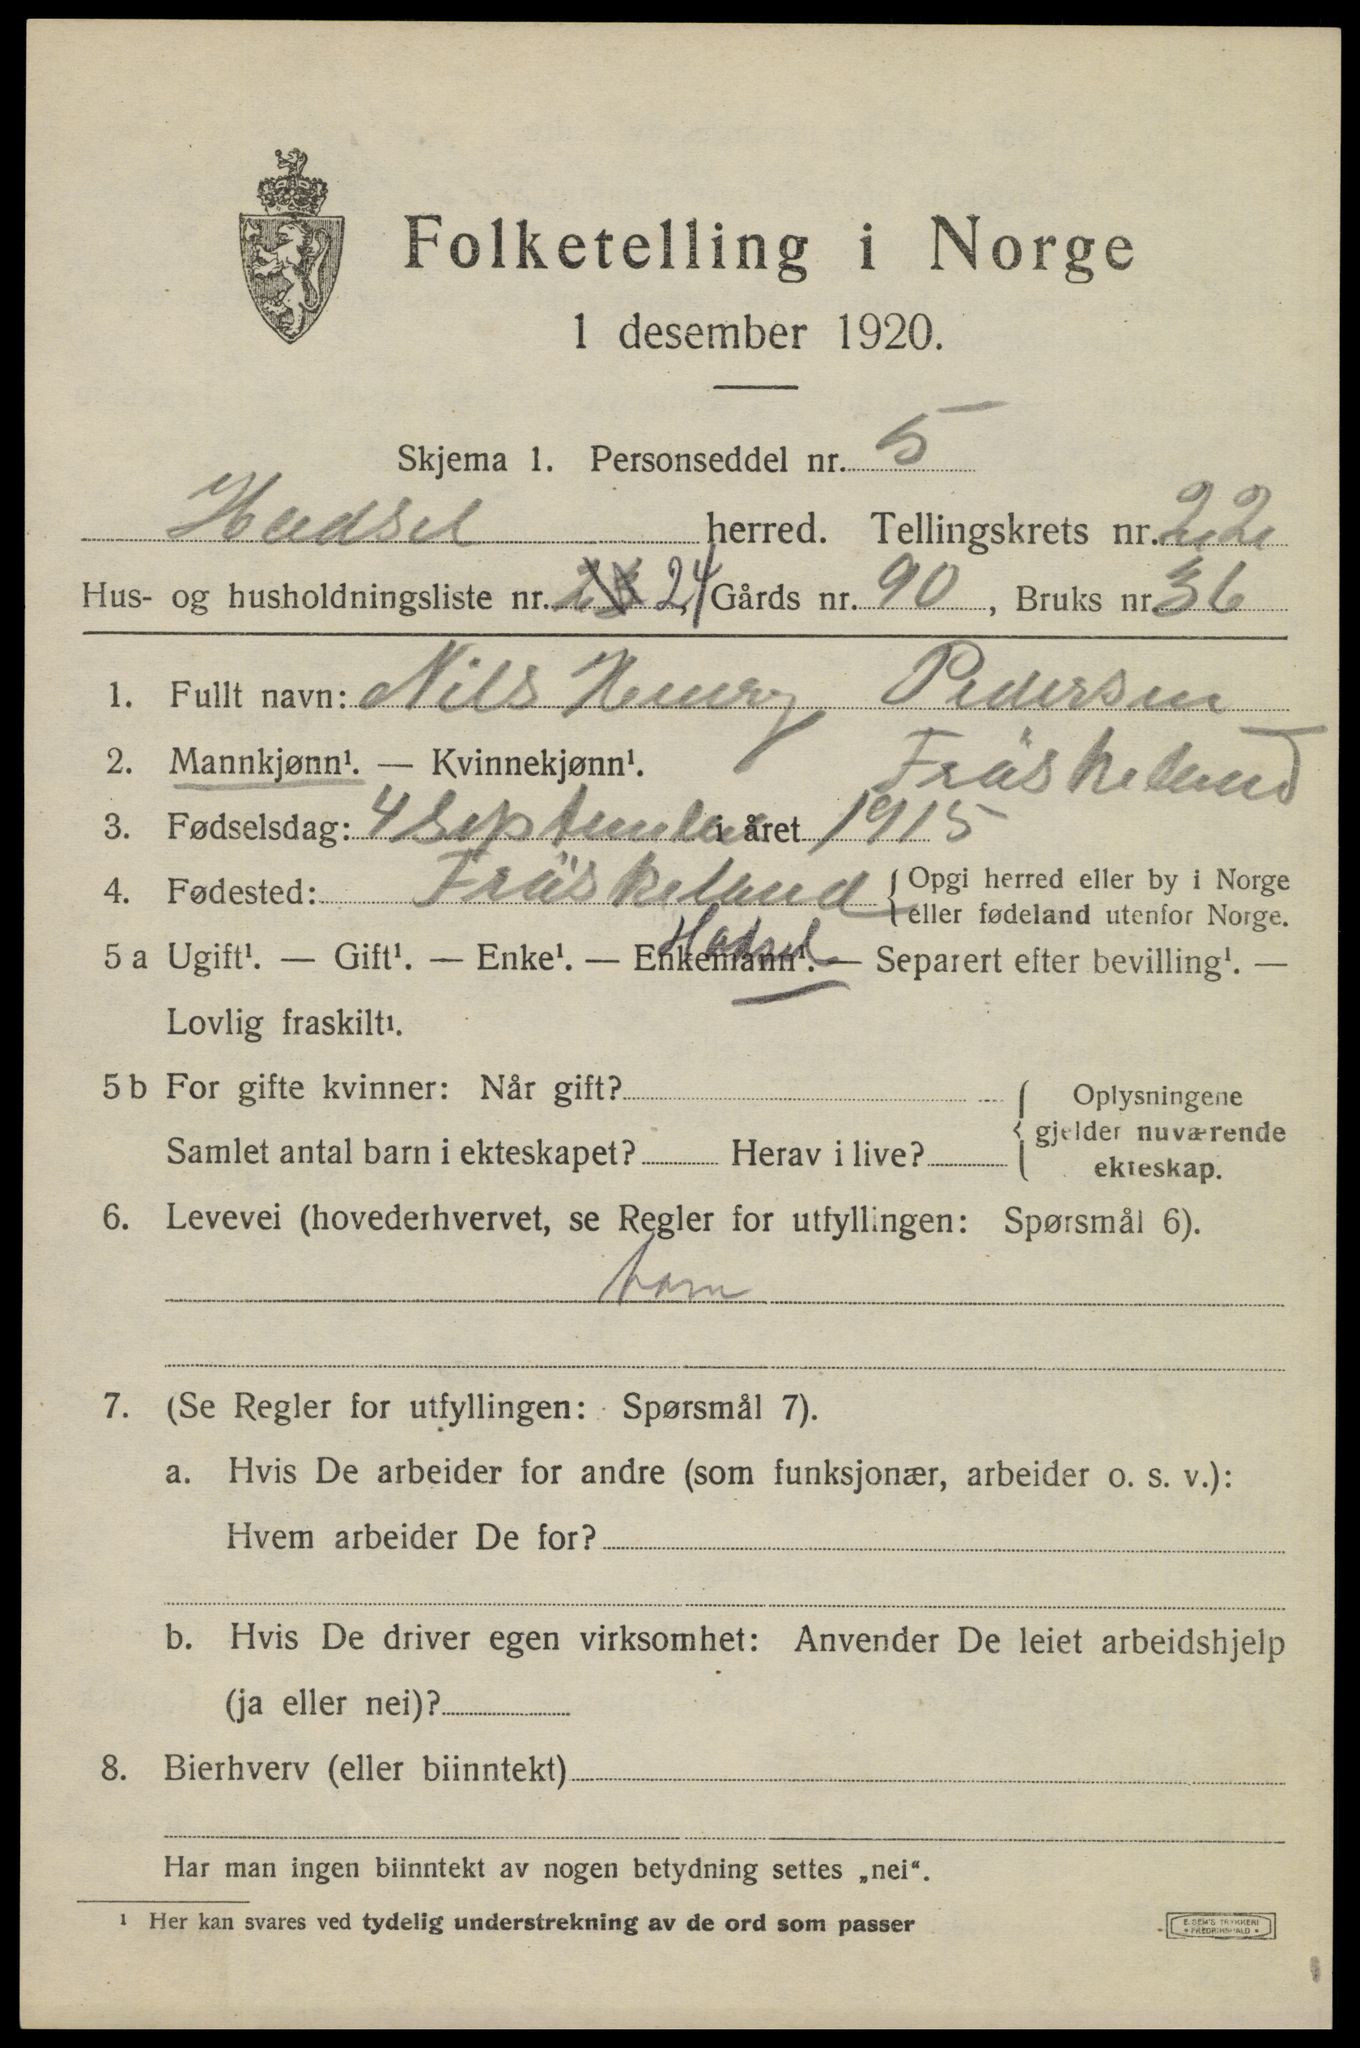 Folketelling i Norge
1 desember 1920.
Skjema 1. Personseddel nr. 5
Hadsel herred. Tellingskrets nr. 22
Hus- og husholdningsliste nr. 24 Gårds nr. 90, Bruks nr. 36
1. Fullt navn: Nils Henry Pedersen
2. Mannkjønn¹. — Kvinnekjønn¹. Fräskeland
3. Fødselsdag: 4 September i året 1915
4. Fødested: Fräskeland {Opgi herred eller by i Norge
eller fødeland utenfor Norge.
Hadsel
5 a Ugift¹. — Gift¹. — Enke¹. — Enkemann¹. — Separert efter bevilling¹. —
Lovlig fraskilt¹.
5 b For gifte kvinner: Når gift? { Oplysningene
gjelder nuværende
Samlet antal barn i ekteskapet? Herav i live? ekteskap.
6. Levevei (hovederhvervet, se Regler for utfyllingen: Spørsmål 6).
barn
7. (Se Regler for utfyllingen: Spørsmål 7).
a. Hvis De arbeider for andre (som funksjonær, arbeider o. s. v.):
Hvem arbeider De for?
b. Hvis De driver egen virksomhet: Anvender De leiet arbeidshjelp
(ja eller nei)?
8. Bierhverv (eller biinntekt)
Har man ingen biinntekt av nogen betydning settes „nei“.
¹ Her kan svares ved tydelig understrekning av de ord som passer
E. SEM'S TRYKKERI
• FREDRIKSHALD •